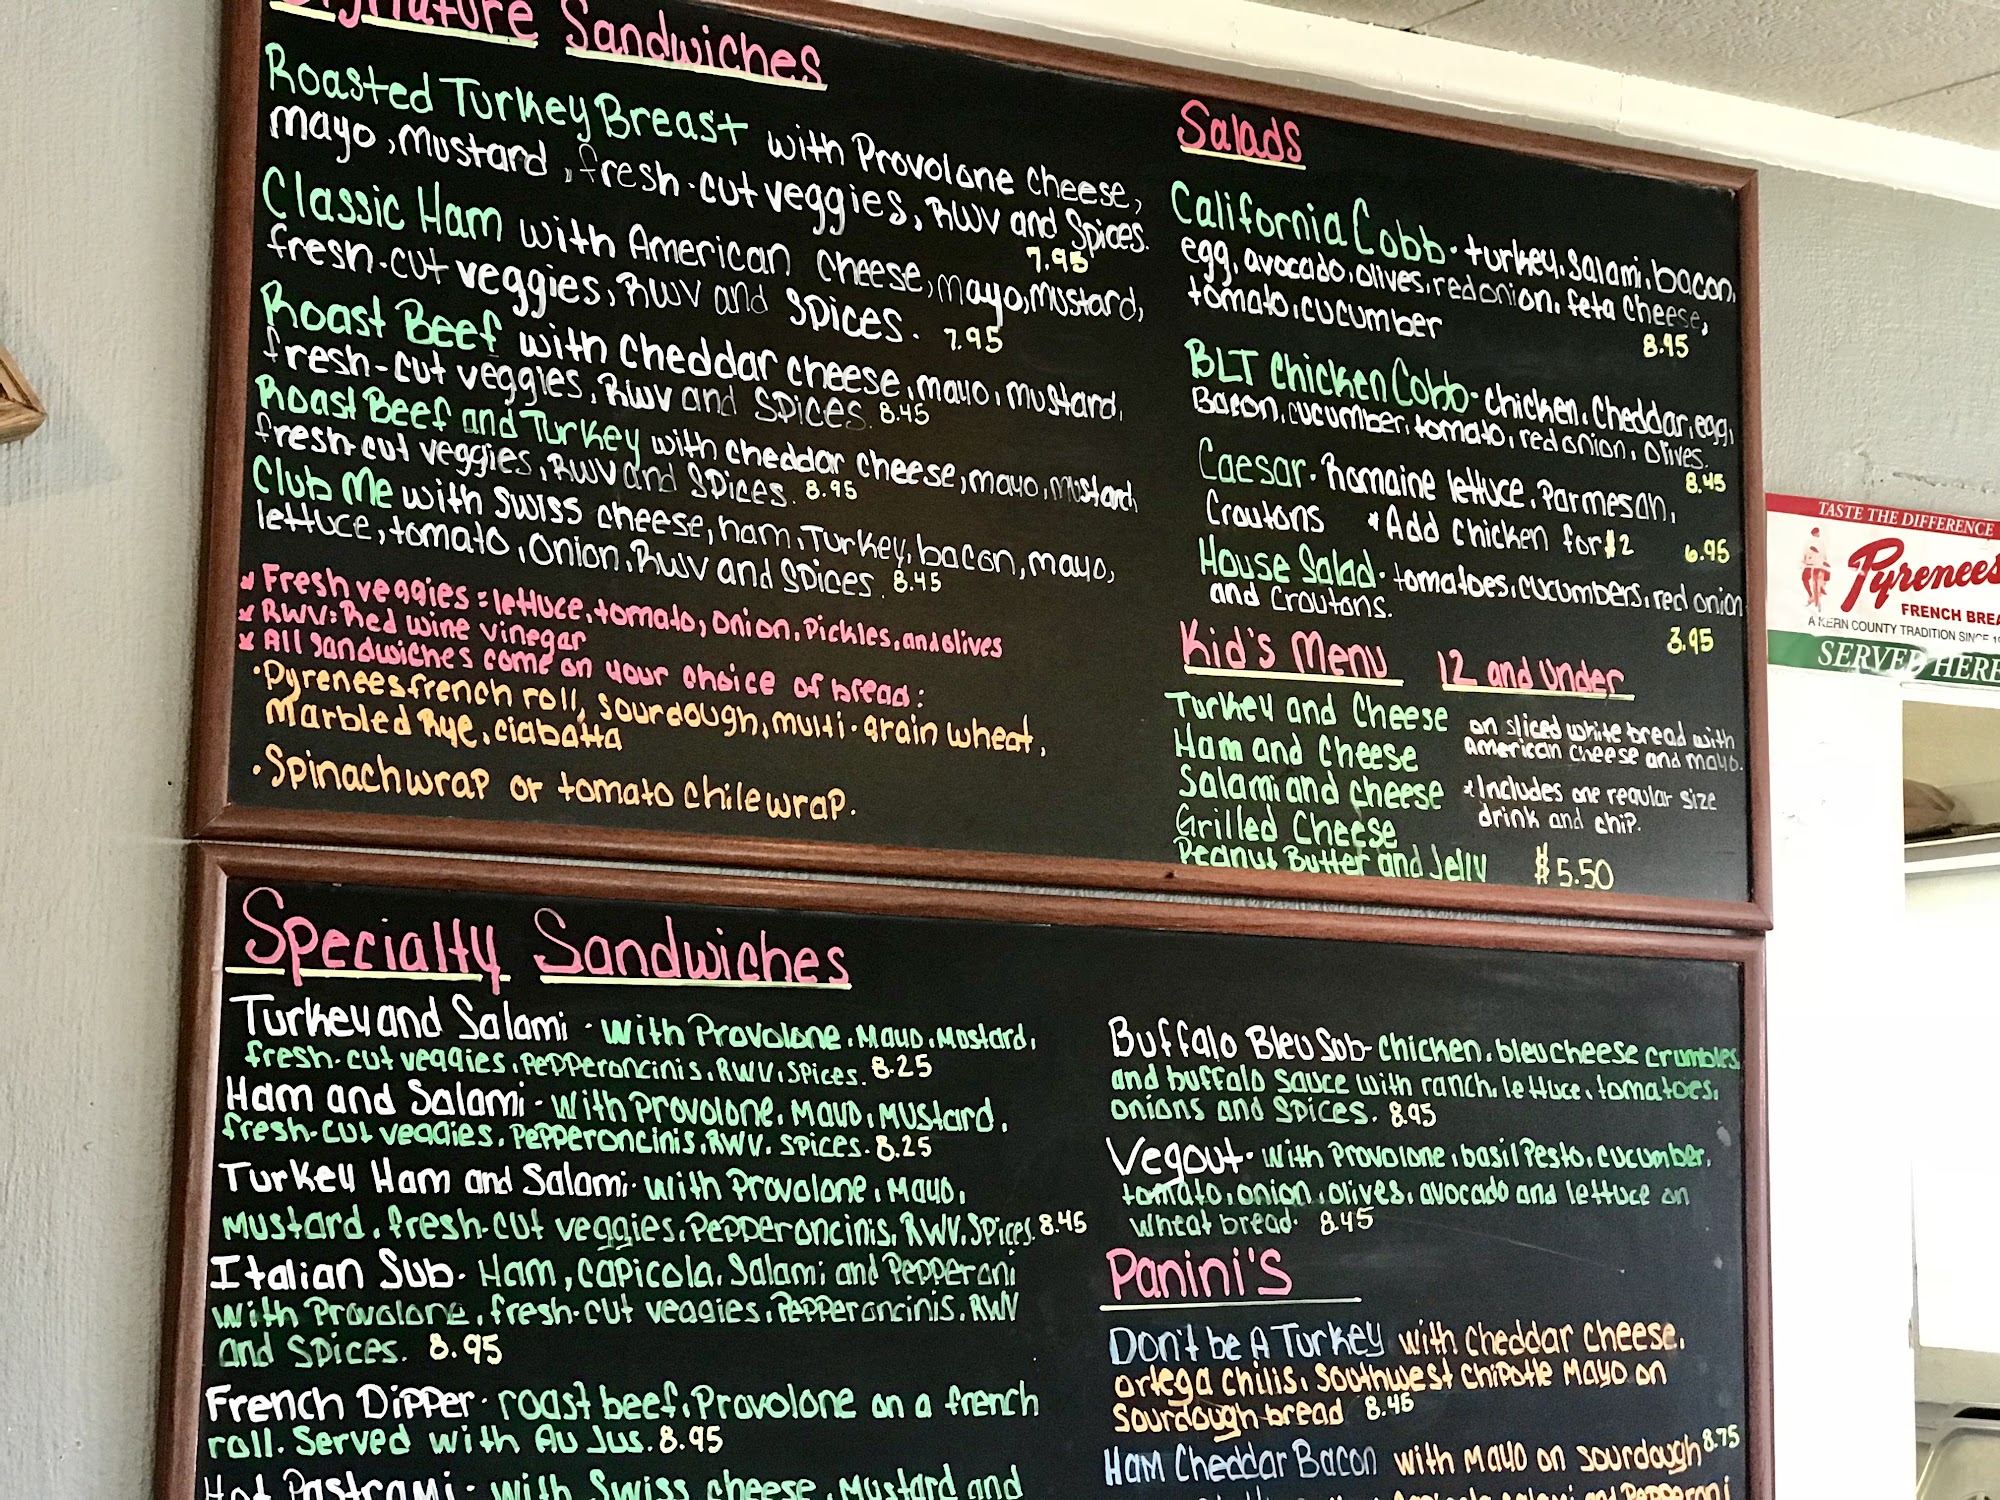 Signature Sandwiches
Roasted Turkey Breast with Provolone cheese,
mayo, Mustard, fresh-cut veggies, RWV and Spices.
7.95
Classic Ham with American cheese, mayo, Mustard,
fresh-cut veggies, RWV and Spices. 7.95
Roast Beef with cheddar cheese, mayo, mustard,
fresh-cut veggies, RWV and Spices. 8.45
Roast Beef and Turkey with cheddar cheese, mayo, mustard,
fresh-cut veggies, RWV and Spices. 8.95
Club Me with Swiss cheese, ham, Turkey, bacon, mayo,
lettuce, tomato, onion, RWV and Spices. 8.45
* Fresh veggies = lettuce, tomato, onion, Pickles, and olives
* RWV: Red wine vinegar
* All Sandwiches come on your choice of bread:
• Pyrenees french roll, sourdough, multi-grain wheat,
Marbled Rye, ciabatta
• Spinach wrap or tomato chile wrap.
Salads
California Cobb - turkey, salami, bacon,
egg, avocado, olives, red onion, feta cheese,
tomato, cucumber
8.95
BLT Chicken Cobb - chicken, cheddar, egg,
Bacon, cucumber, tomato, red onion, olives.
8.45
Caesar - Romaine lettuce, Parmesan,
Croutons * Add chicken for $2 6.95
House Salad - tomatoes, cucumbers, red onion
and Croutons.
3.95
Kid's Menu 12 and Under
Turkey and Cheese
Ham and Cheese
Salami and cheese
Grilled Cheese
Peanut Butter and Jelly
on sliced white bread with
american cheese and mayo.
* Includes one regular size
drink and chip.
$5.50
TASTE THE DIFFERENCE
Pyrenees
FRENCH BREA
A KERN COUNTY TRADITION SINCE
SERVED HERE
Specialty Sandwiches
Turkey and Salami - with Provolone, Mayo, Mustard,
fresh-cut veggies, Pepperoncinis, RWV, Spices. 8.25
Ham and Salami - with Provolone, Mayo, Mustard,
fresh-cut veggies, Pepperoncinis, RWV, Spices. 8.25
Turkey Ham and Salami - with Provolone, Mayo,
Mustard, fresh-cut veggies, Pepperoncinis, RWV, Spices. 8.45
Italian Sub - Ham, capicola, Salami and Pepperoni
with Provolone, fresh-cut veggies, Pepperoncinis, RWV
and Spices. 8.95
French Dipper - roast beef, Provolone on a french
roll. Served with Au Jus. 8.95
Hot Pastrami - with Swiss cheese, Mustard and
Buffalo Bleu Sub - chicken, bleu cheese crumbles
and buffalo sauce with ranch, lettuce, tomatoes,
onions and Spices. 8.95
Vegout - with Provolone, basil Pesto, cucumber,
tomato, onion, olives, avocado and lettuce on
wheat bread. 8.45
Panini's
Don't be A Turkey with Cheddar Cheese,
ortega chilis, Southwest Chipotle Mayo on
Sourdough bread 8.45
Ham Cheddar Bacon with Mayo on sourdough 8.75
capicola, salami and Pepperoni